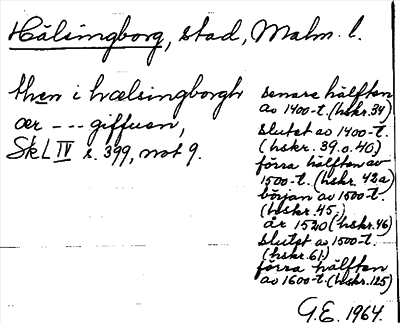 Hälsingborg, stad, Malm. l.
then i hælsingborgh
ær --- giffuen,
SkL IV s. 399, not 9.
senare hälften
av 1400-t. (hskr. 34)
slutet av 1400-t.
(hskr. 39. o. 40)
förra hälften av
1500-t. (hskr. 42a)
början av 1500-t.
(hskr. 45.)
år 1520 (hskr. 46)
slutet av 1500-t.
(hskr. 61)
förra hälften
av 1600-t. (hskr. 125)
G.E. 1964.